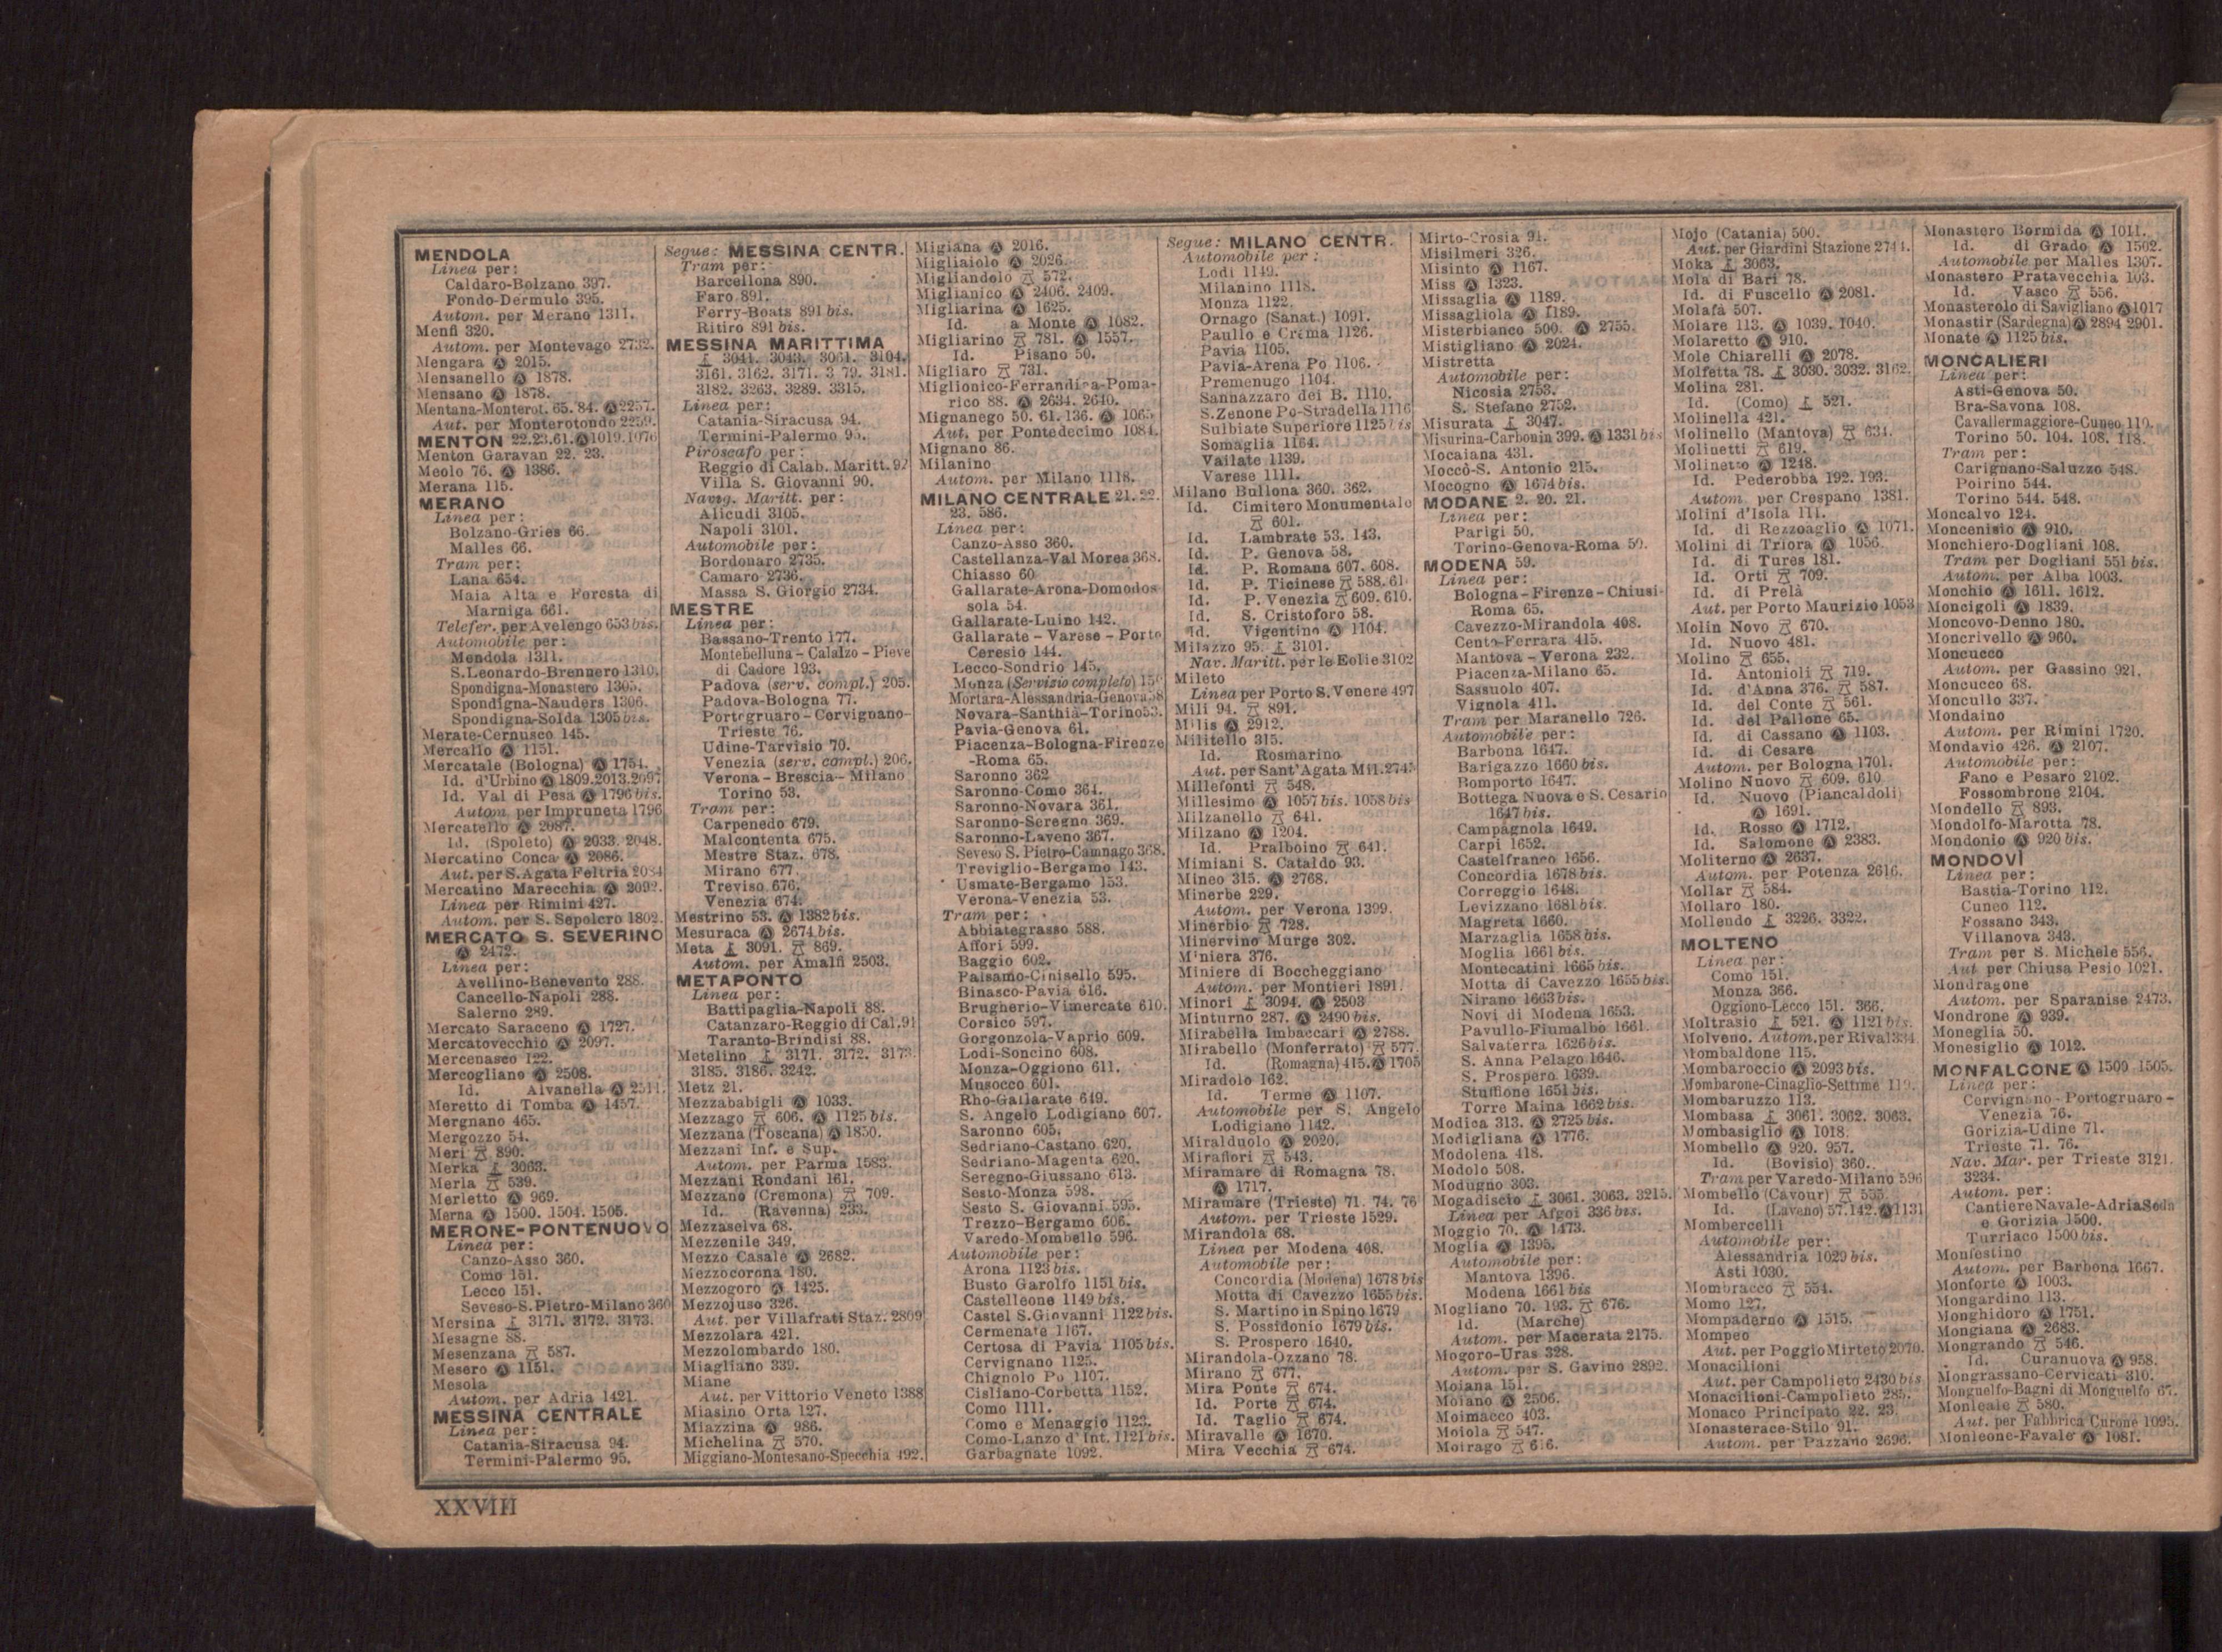 MENDOLA
Linea per:
Caldaro-Bolzano 397.
Fondo-Dermulo 395.
Autom. per Merano 1311.
Menfi 320.
Autom. per Montevago 2732.
Mengara Ⓐ 2015.
Mensanello Ⓐ 1878.
Mensano Ⓐ 1878.
Mentana-Monterot. 65. 84. Ⓐ 2257.
Aut. per Monterotondo 2259.
MENTON 22.23.61. Ⓐ 1019.1076
Menton Garavan 22. 23.
Meolo 76. Ⓐ 1386.
Merana 115.
MERANO
Linea per:
Bolzano-Gries 66.
Malles 66.
Tram per:
Lana 654.
Maia Alta e Foresta di
Marniga 661.
Telefer. per Avelengo 653 bis.
Automobile per:
Mendola 1311.
S.Leonardo-Brennero 1310.
Spondigna-Monastero 1305.
Spondigna-Nauders 1306.
Spondigna-Solda 1305 bis.
Merate-Cernusco 145.
Mercallo Ⓐ 1151.
Mercatale (Bologna) Ⓐ 1754.
Id. d'Urbino Ⓐ 1809.2013.2097
Id. Val di Pesa Ⓐ 1796 bis.
Autom. per Impruneta 1796
Mercatello Ⓐ 2087.
Id. (Spoleto) Ⓐ 2033. 2048.
Mercatino Conca Ⓐ 2086.
Aut. per S. Agata Feltria 2084
Mercatino Marecchia Ⓐ 2092.
Linea per Rimini 427.
Autom. per S. Sepolcro 1802.
MERCATO S. SEVERINO
Ⓐ 2472.
Linea per:
Avellino-Benevento 288.
Cancello-Napoli 288.
Salerno 289.
Mercato Saraceno Ⓐ 1727.
Mercatovecchio Ⓐ 2097.
Mercenasco 122.
Mercogliano Ⓐ 2508.
Id. Alvanella Ⓐ 2511.
Meretto di Tomba Ⓐ 1457.
Mergnano 465.
Mergozzo 54.
Merì 890.
Merka 3063.
Merla 539.
Merletto Ⓐ 969.
Merna Ⓐ 1500. 1504. 1505.
MERONE-PONTENUOVO
Linea per:
Canzo-Asso 360.
Como 151.
Lecco 151.
Seveso-S.Pietro-Milano 360
Mersina 3171. 3172. 3173.
Mesagne 88.
Mesenzana 587.
Mesero Ⓐ 1151.
Mesola
Autom. per Adria 1421.
MESSINA CENTRALE
Linea per:
Catania-Siracusa 94.
Termini-Palermo 95.
Segue: MESSINA CENTR.
Tram per:
Barcellona 890.
Faro 891.
Ferry-Boats 891 bis.
Ritiro 891 bis.
MESSINA MARITTIMA
3041. 3043. 3061. 3104.
3161. 3162. 3171. 3181.
3182. 3263. 3289. 3315.
Linea per:
Catania-Siracusa 94.
Termini-Palermo 95.
Piroscafo per:
Reggio di Calab. Maritt. 92
Villa S. Giovanni 90.
Navig. Maritt. per:
Alicudi 3105.
Napoli 3101.
Automobile per:
Bordonaro 2735.
Camaro 2736.
Massa S. Giorgio 2734.
MESTRE
Linea per:
Bassano-Trento 177.
Montebelluna-Calalzo-Pieve
di Cadore 193.
Padova (serv. compl.) 205.
Padova-Bologna 77.
Portogruaro-Cervignano-
Trieste 76.
Udine-Tarvisio 70.
Venezia (serv. compl.) 206.
Verona-Brescia-Milano
Torino 53.
Tram per:
Carpenedo 679.
Malcontenta 675.
Mestre Staz. 678.
Mirano 677.
Treviso 676.
Venezia 674.
Mestrino 53. Ⓐ 1382 bis.
Mesuraca Ⓐ 2674 bis.
Meta 3091. 869.
Autom. per Amalfi 2503.
METAPONTO
Linea per:
Battipaglia-Napoli 88.
Catanzaro-Reggio di Cal. 91
Taranto-Brindisi 88.
Metelino 3171. 3172. 3173.
3185. 3186. 3242.
Metz 21.
Mezzababigli Ⓐ 1033.
Mezzago 606. Ⓐ 1125 bis.
Mezzana (Toscana) Ⓐ 1850.
Mezzani Inf. e Sup.
Autom. per Parma 1583.
Mezzani Rondani 161.
Mezzano (Cremona) 709.
Id. (Ravenna) 233.
Mezzaselva 68.
Mezzenile 349.
Mezzo Casale Ⓐ 2682.
Mezzocorona 180.
Mezzogoro Ⓐ 1425.
Mezzojuso 326.
Aut. per Villafrati Staz. 2809
Mezzolara 421.
Mezzolombardo 180.
Miagliano 339.
Miane
Aut. per Vittorio Veneto 1388
Miasino Orta 127.
Miazzina Ⓐ 986.
Michelina 570.
Miggiano-Montesano-Specchia 492.
Migiana Ⓐ 2016.
Migliaiolo Ⓐ 2026.
Migliandolo 572.
Miglianico Ⓐ 2406. 2409.
Migliarina Ⓐ 1625.
Id. a Monte Ⓐ 1082.
Migliarino 781. Ⓐ 1557.
Id. Pisano 50.
Migliaro 731.
Miglionico-Ferrandina-Poma-
rico 88. Ⓐ 2634. 2640.
Mignanego 50. 61. 136. Ⓐ 1065
Aut. per Pontedecimo 1084.
Mignano 86.
Milanino
Autom. per Milano 1118.
MILANO CENTRALE 21. 22.
23. 586.
Linea per:
Canzo-Asso 360.
Castellanza-Val Morea 368.
Chiasso 60.
Gallarate-Arona-Domodos
sola 54.
Gallarate-Luino 142.
Gallarate-Varese-Porto
Ceresio 144.
Lecco-Sondrio 145.
Monza (Servizio completo)
Mortara-Alessandria-Genova 58
Novara-Santhià-Torino 53.
Pavia-Genova 61.
Piacenza-Bologna-Firenze
-Roma 65.
Saronno 362
Saronno-Como 364.
Saronno-Novara 361.
Saronno-Seregno 369.
Saronno-Laveno 367.
Seveso S. Pietro-Camnago 368.
Treviglio-Bergamo 143.
Usmate-Bergamo 153.
Verona-Venezia 53.
Tram per:
Abbiategrasso 588.
Affori 599.
Baggio 602.
Balsamo-Cinisello 595.
Binasco-Pavia 616.
Brugherio-Vimercate 610.
Corsico 597.
Gorgonzola-Vaprio 609.
Lodi-Soncino 608.
Monza-Oggiono 611.
Musocco 601.
Rho-Gallarate 649.
S. Angelo Lodigiano 607.
Saronno 605.
Sedriano-Castano 620.
Sedriano-Magenta 620.
Seregno-Giussano 613.
Sesto-Monza 598.
Sesto S. Giovanni 595.
Trezzo-Bergamo 606.
Varedo-Mombello 596.
Automobile per:
Arona 1123 bis.
Busto Garolfo 1151 bis.
Castelleone 1149 bis.
Castel S.Giovanni 1122 bis.
Cermenate 1167.
Certosa di Pavia 1105 bis.
Cervignano 1125.
Chignolo Po 1107.
Cisliano-Corbetta 1152.
Como 1111.
Como e Menaggio 1123.
Como-Lanzo d'Int. 1121 bis.
Garbagnate 1092.
Segue: MILANO CENTR.
Automobile per:
Lodi 1149.
Milanino 1118.
Monza 1122.
Ornago (Sanat.) 1091.
Paullo e Crema 1126.
Pavia 1105.
Pavia-Arena Po 1106.
Premenugo 1104.
Sannazzaro dei B. 1110.
S.Zenone Po-Stradella 1116
Sulbiate Superiore 1125 bis
Somaglia 1164.
Vailate 1139.
Varese 1111.
Milano Bullona 360. 362.
Id. Cimitero Monumentale
601.
Id. Lambrate 53. 143.
Id. P. Genova 58.
Id. P. Romana 607. 608.
Id. P. Ticinese 588.
Id. P. Venezia 609. 610.
Id. S. Cristoforo 58.
Id. Vigentino Ⓐ 1104.
Milazzo 95. 3101.
Nav. Maritt. per le Eolie 3102
Mileto
Linea per Porto S. Venere 497
Mili 94. 891.
Milis Ⓐ 2912.
Militello 315.
Id. Rosmarino
Aut. per Sant'Agata Mil.
Millefonti 548.
Millesimo Ⓐ 1057 bis. 1058 bis
Milzanello 641.
Milzano Ⓐ 1204.
Id. Pralboino 641.
Mimiani S. Cataldo 93.
Mineo 315. Ⓐ 2768.
Minerbe 229.
Autom. per Verona 1399.
Minerbio 728.
Minervino Murge 302.
Miniera 376.
Miniere di Boccheggiano
Autom. per Montieri 1891.
Minori 3094. Ⓐ 2503
Minturno 287. Ⓐ 2490 bis.
Mirabella Imbaccari Ⓐ 2788.
Mirabello (Monferrato) 577.
Id. (Romagna) 415. Ⓐ 1705
Miradolo 162.
Id. Terme Ⓐ 1107.
Automobile per S. Angelo
Lodigiano 1142.
Miralduolo Ⓐ 2020.
Miraflori 543.
Miramare di Romagna 78.
Ⓐ 1717.
Miramare (Trieste) 71. 74. 76
Autom. per Trieste 1529.
Mirandola 68.
Linea per Modena 408.
Automobile per:
Concordia (Modena) 1678 bis
Motta di Cavezzo 1655 bis.
S. Martino in Spino 1679
S. Possidonio 1679 bis.
S. Prospero 1640.
Mirandola-Ozzano 78.
Mirano 677.
Mira Ponte 674.
Id. Porte 674.
Id. Taglio 674.
Miravalle Ⓐ 1670.
Mira Vecchia 674.
Mirto-Crosia 91.
Misilmeri 326.
Misinto Ⓐ 1167.
Miss Ⓐ 1323.
Missaglia Ⓐ 1189.
Missagliola Ⓐ 1189.
Misterbianco 500. Ⓐ 2755.
Mistigliano Ⓐ 2024.
Mistretta
Automobile per:
Nicosia 2753.
S. Stefano 2752.
Misurata 3047.
Misurina-Carbonin 399. Ⓐ 1331 bis
Mocaiana 431.
Moccò-S. Antonio 215.
Mocogno Ⓐ 1674 bis.
MODANE 2. 20. 21.
Linea per:
Parigi 50.
Torino-Genova-Roma 50.
MODENA 59.
Linea per:
Bologna-Firenze-Chiusi-
Roma 65.
Cavezzo-Mirandola 408.
Cento-Ferrara 415.
Mantova-Verona 232.
Piacenza-Milano 65.
Sassuolo 407.
Vignola 411.
Tram per Maranello 726.
Automobile per:
Barbona 1647.
Barigazzo 1660 bis.
Bomporto 1647.
Bottega Nuova e S. Cesario
1647 bis.
Campagnola 1649.
Carpi 1652.
Castelfranco 1656.
Concordia 1678 bis.
Correggio 1648.
Levizzano 1681 bis.
Magreta 1660.
Marzaglia 1658 bis.
Moglia 1661 bis.
Montecatini 1665 bis.
Motta di Cavezzo 1655 bis.
Nirano 1663 bis.
Novi di Modena 1653.
Pavullo-Fiumalbo 1661.
Salvaterra 1626 bis.
S. Anna Pelago 1646.
S. Prospero 1639.
Stuffione 1651 bis.
Torre Maina 1662 bis.
Modica 313. Ⓐ 2725 bis.
Modigliana Ⓐ 1776.
Modolena 418.
Modolo 508.
Modugno 303.
Mogadiscio 3061. 3063. 3215.
Linea per Afgoi 336 bis.
Moggio 70. Ⓐ 1473.
Moglia Ⓐ 1395.
Automobile per:
Mantova 1396.
Modena 1661 bis
Mogliano 70. 193. 676.
Id. (Marche)
Autom. per Macerata 2175.
Mogoro-Uras 328.
Autom. per S. Gavino 2892.
Moiana 151.
Moiano Ⓐ 2506.
Moimacco 403.
Moiola 547.
Moirago 616.
Mojo (Catania) 500.
Aut. per Giardini Stazione 2744.
Moka 3063.
Mola di Bari 78.
Id. di Fuscello Ⓐ 2081.
Molafà 507.
Molare 113. Ⓐ 1039. 1040.
Molaretto Ⓐ 910.
Mole Chiarelli Ⓐ 2078.
Molfetta 78. 3030. 3032. 3162.
Molina 281.
Id. (Como) 521.
Molinella 421.
Molinello (Mantova) 634.
Molinetti 619.
Molinetto Ⓐ 1248.
Id. Pederobba 192. 193.
Autom. per Crespano 1381.
Molini d'Isola 111.
Id. di Rezzoaglio Ⓐ 1071.
Molini di Triora Ⓐ 1056.
Id. di Tures 181.
Id. Orti 709.
Id. di Prelà
Aut. per Porto Maurizio 1053
Molin Novo 670.
Id. Nuovo 481.
Molino 655.
Id. Antonioli 719.
Id. d'Anna 376. 587.
Id. del Conte 561.
Id. del Pallone 65.
Id. di Cassano Ⓐ 1103.
Id. di Cesare
Autom. per Bologna 1701.
Molino Nuovo 609. 610
Id. Nuovo (Piancaldoli)
Ⓐ 1691.
Id. Rosso Ⓐ 1712.
Id. Salomone Ⓐ 2383.
Moliterno Ⓐ 2637.
Autom. per Potenza 2616.
Mollar 584.
Mollaro 180.
Mollendo 3226. 3322.
MOLTENO
Linea per:
Como 151.
Monza 366.
Oggiono-Lecco 151. 366.
Moltrasio 521. Ⓐ 1121 bis.
Molveno. Autom. per Riva 1334
Mombaldone 115.
Mombaroccio Ⓐ 2093 bis.
Mombarone-Cinaglio-Settime
Mombaruzzo 113.
Mombasa 3061. 3062. 3063.
Mombasiglio Ⓐ 1018.
Mombello Ⓐ 920. 957.
Id. (Bovisio) 360.
Tram per Varedo-Milano 596
Mombello (Cavour) 555.
Id. (Laveno) 57.142. Ⓐ 1131
Mombercelli
Automobile per:
Alessandria 1029 bis.
Asti 1030.
Mombracco 554.
Momo 127.
Mompaderno Ⓐ 1515.
Mompeo
Aut. per Poggio Mirteto 2070.
Monacilioni
Aut. per Campolieto 2430 bis
Monacilioni-Campolieto 285.
Monaco Principato 22. 23.
Monasterace-Stilo 91.
Autom. per Pazzano 2696.
Monastero Bormida Ⓐ 1011.
Id. di Grado Ⓐ 1502.
Automobile per Malles 1307.
Monastero Pratavecchia 103.
Id. Vasco 556.
Monasterolo di Savigliano Ⓐ 1017
Monastir (Sardegna) Ⓐ 2894 2901.
Monate Ⓐ 1125 bis.
MONCALIERI
Linea per:
Asti-Genova 50.
Bra-Savona 108.
Cavallermaggiore-Cuneo 110.
Torino 50. 104. 108. 118.
Tram per:
Carignano-Saluzzo 548.
Poirino 544.
Torino 544. 548.
Moncalvo 124.
Moncenisio Ⓐ 910.
Monchiero-Dogliani 108.
Tram per Dogliani 551 bis.
Autom. per Alba 1003.
Monchio Ⓐ 1611. 1612.
Moncigoli Ⓐ 1839.
Moncovo-Denno 180.
Moncrivello Ⓐ 960.
Moncucco
Autom. per Gassino 921.
Moncucco 68.
Moncullo 337.
Mondaino
Autom. per Rimini 1720.
Mondavio 426. Ⓐ 2107.
Automobile per:
Fano e Pesaro 2102.
Fossombrone 2104.
Mondello 893.
Mondolfo-Marotta 78.
Mondonio Ⓐ 920 bis.
MONDOVÌ
Linea per:
Bastia-Torino 112.
Cuneo 112.
Fossano 343.
Villanova 343.
Tram per S. Michele 556.
Aut. per Chiusa Pesio 1021.
Mondragone
Autom. per Sparanise 2473.
Mondrone Ⓐ 939.
Moneglia 50.
Monesiglio Ⓐ 1012.
MONFALCONE Ⓐ 1500 1505.
Linea per:
Cervignano-Portogruaro-
Venezia 76.
Gorizia-Udine 71.
Trieste 71. 76.
Nav. Mar. per Trieste 3121.
3234.
Autom. per:
Cantiere Navale-Adria
e Gorizia 1500.
Turriaco 1500 bis.
Monfestino
Autom. per Barbona 1667.
Monforte Ⓐ 1003.
Mongardino 113.
Monghidoro Ⓐ 1751.
Mongiana Ⓐ 2683.
Mongrando 546.
Id. Curanuova Ⓐ 958.
Mongrassano-Cervicati 310.
Monguelfo-Bagni di Monguelfo 67.
Monleale 580.
Aut. per Fabbrica Curone 1095.
Monleone-Favale Ⓐ 1081.
XXVIII